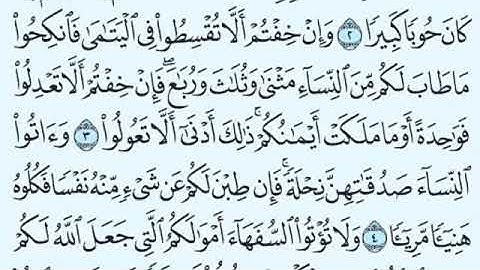 كَانَ حُوبًا كَبِيرًا ٢ وَإِنْ خِفْتُمْ أَلَّا تُقْسِطُوا۟ فِى ٱلْيَتَٰمَىٰ فَٱنكِحُوا۟
مَا طَابَ لَكُم مِّنَ ٱلنِّسَآءِ مَثْنَىٰ وَثُلَٰثَ وَرُبَٰعَ ۖ فَإِنْ خِفْتُمْ أَلَّا تَعْدِلُوا۟
فَوَٰحِدَةً أَوْ مَا مَلَكَتْ أَيْمَٰنُكُمْ ۚ ذَٰلِكَ أَدْنَىٰٓ أَلَّا تَعُولُوا۟ ٣ وَءَاتُوا۟
ٱلنِّسَآءَ صَدُقَٰتِهِنَّ نِحْلَةً ۚ فَإِن طِبْنَ لَكُمْ عَن شَىْءٍ مِّنْهُ نَفْسًا فَكُلُوهُ
هَنِيٓـًٔا مَّرِيٓـًٔا ٤ وَلَا تُؤْتُوا۟ ٱلسُّفَهَآءَ أَمْوَٰلَكُمُ ٱلَّتِى جَعَلَ ٱللَّهُ لَكُمْ